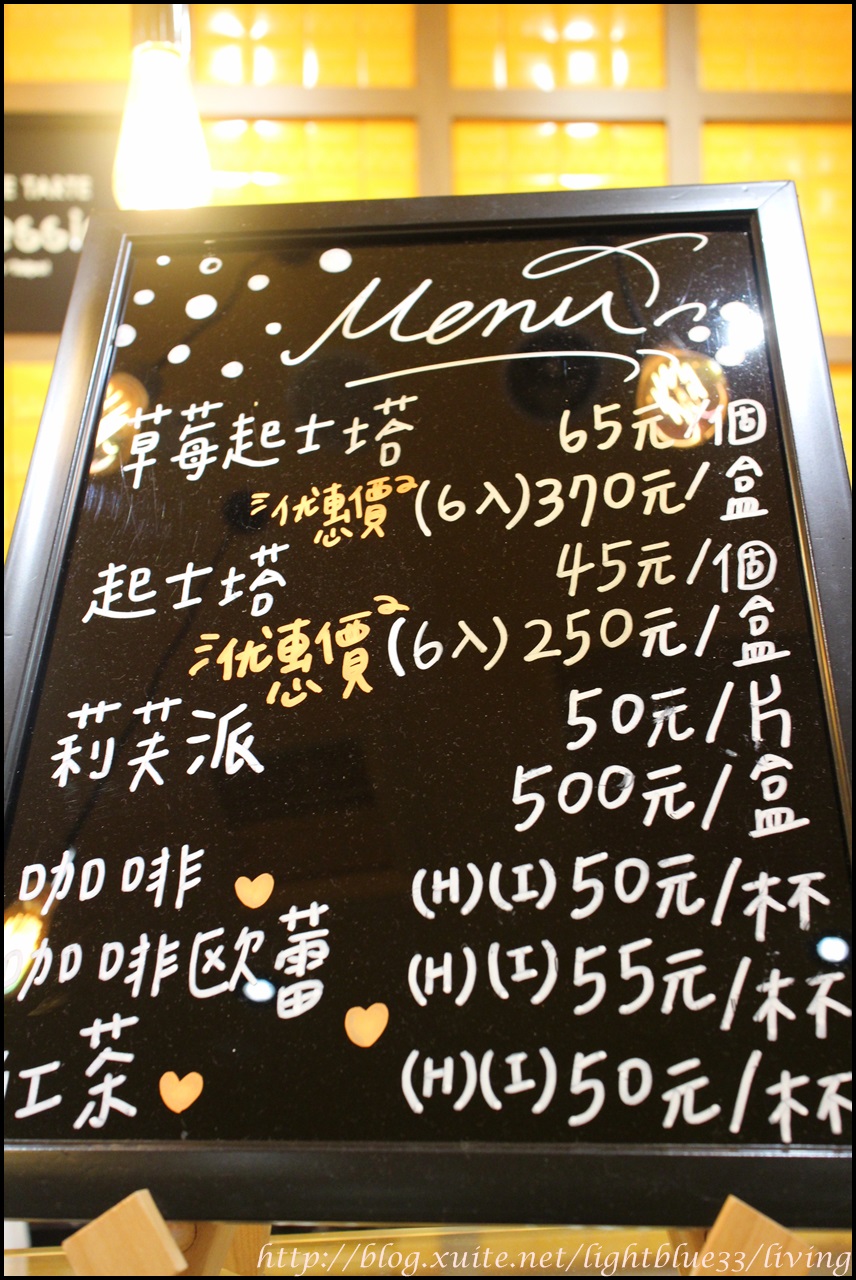 E TARTE
essi
Menu
草莓起士塔 65元/個
優惠價(6入)370元/盒
起士塔 45元/個
優惠價(6入)250元/盒
莉芙派 50元/片
500元/盒
咖啡 (H)(I)50元/杯
咖啡歐蕾 (H)(I)55元/杯
紅茶 (H)(I)50元/杯
http://blog.xuite.net/lightblue33/living